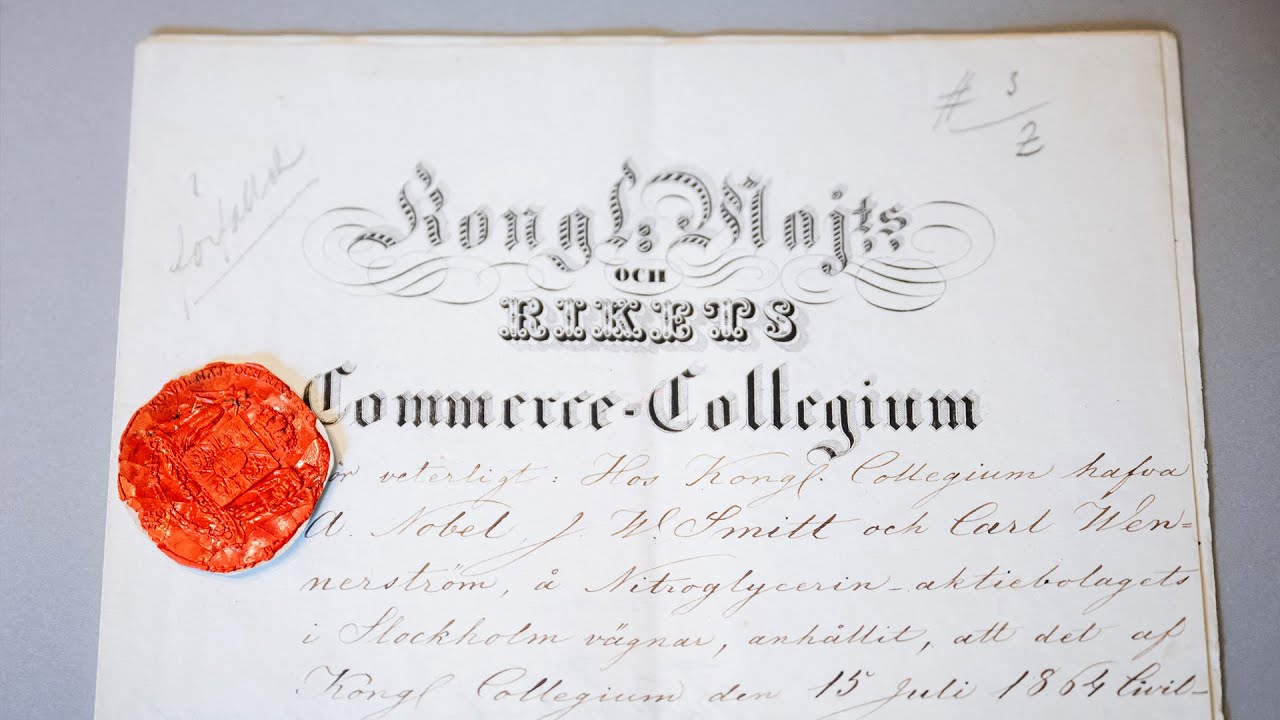 # 3
2
förfallet
Kongl: Maj:ts
OCH
RIKETS
Commerce-Collegium
Gör veterligt: Hos Kongl. Collegium hafva
A. Nobel, J. W. Smitt och Carl Wen-
nerström, å Nitroglycerin-aktiebolagets
i Stockholm vägnar, anhållit, att det af
Kongl Collegium den 15 Juli 1864 Civil-